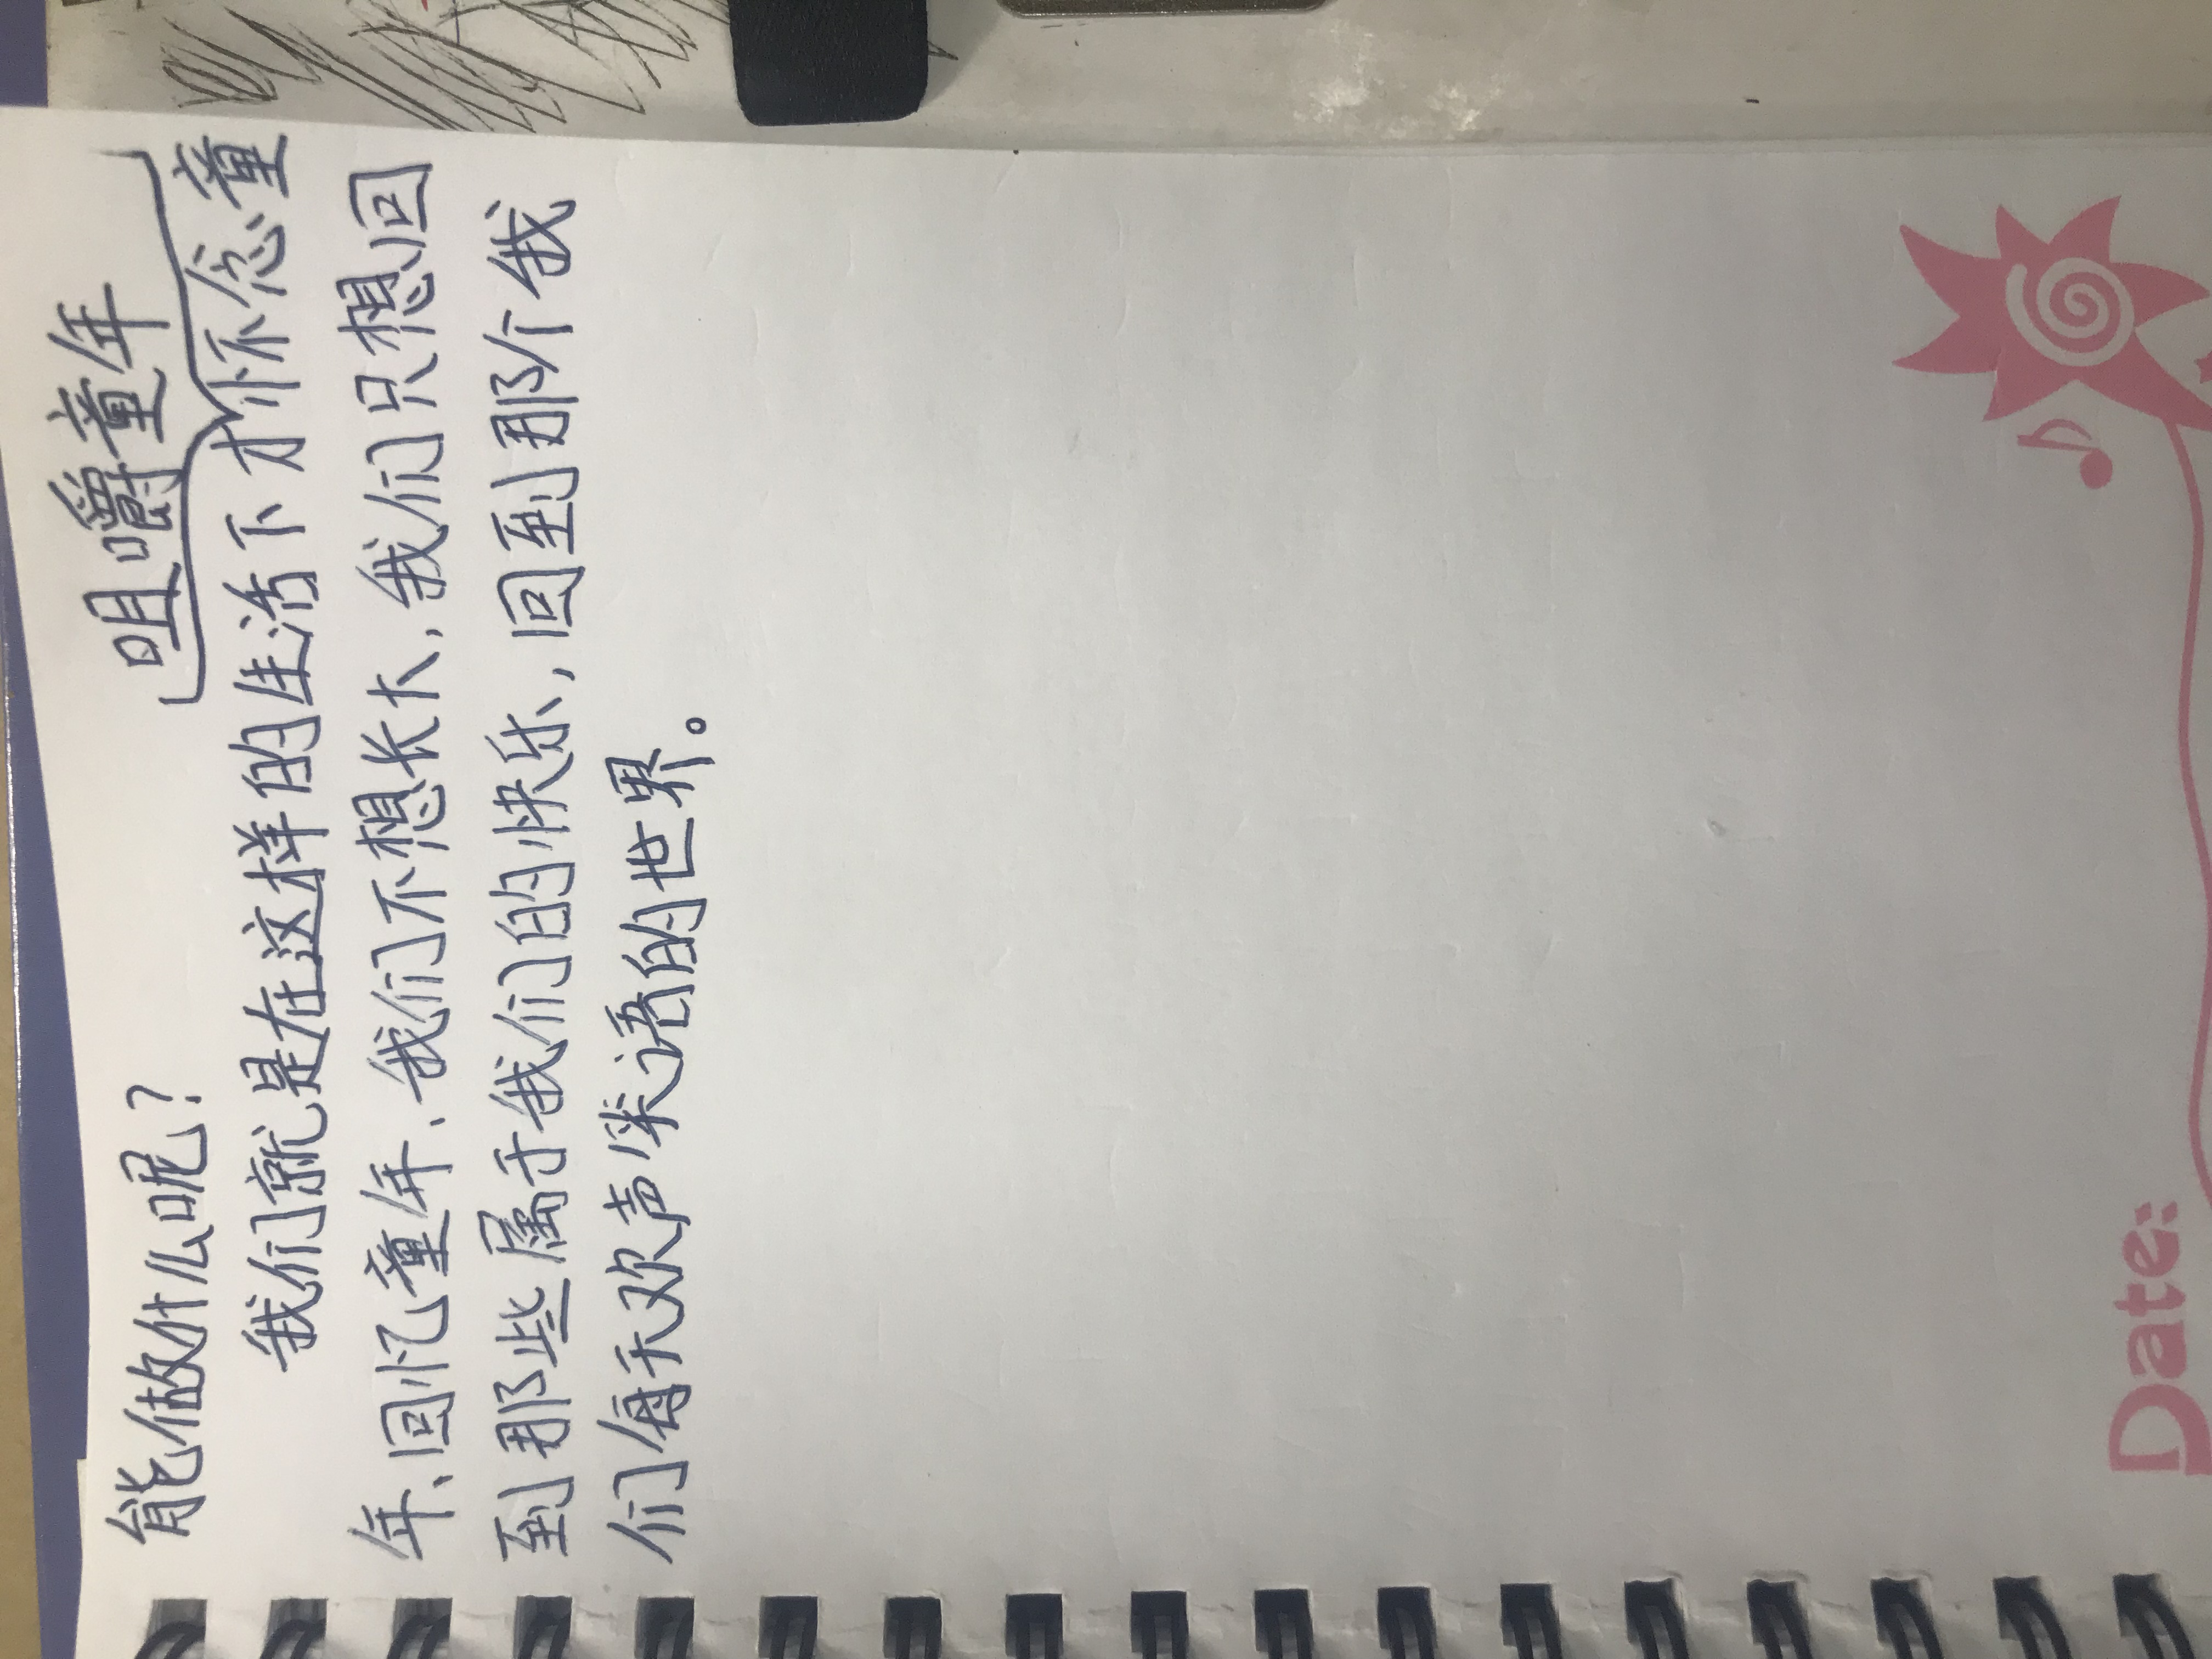 能做什么呢?
咀嚼童年
我们就是在这样的生活下才怀念童
年、回忆童年、我们不想长大,我们只想回
到那些属于我们的快乐,回到那个我
们每天欢声笑语的世界。
Date: